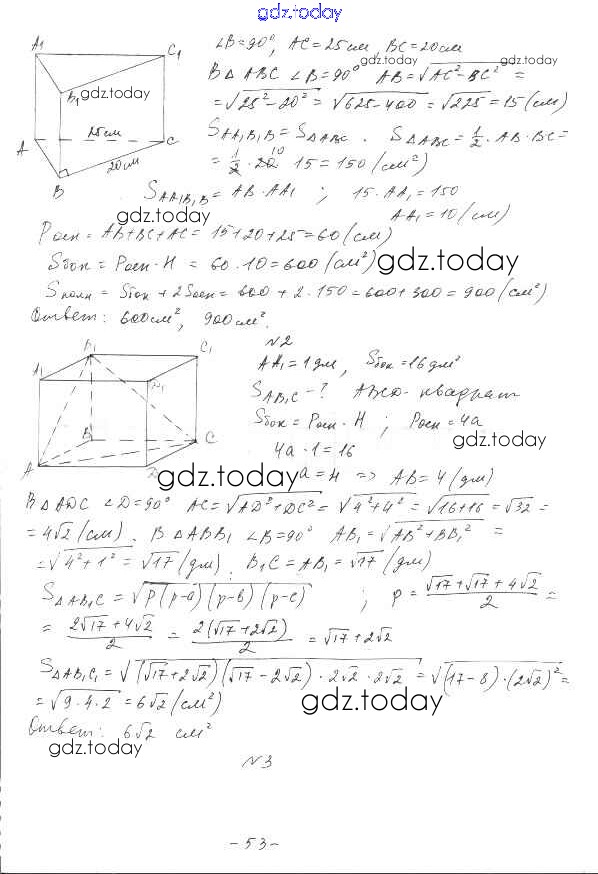 gdz.today
∠B=90°, AC=25см, BC=20см
A₁ C₁ B₁ gdz.today
В △ABC ∠B=90° AB=√(AC²-BC²) = gdz.today
=√(25²-20²)=√(625-400)=√225=15(см)
25см A C 20см B
S_AA₁B₁B=S_△ABC. S_△ABC=1/2·AB·BC=
=1/2·20 10 15=150(см²)
S_AA₁B₁B=AB·AA₁ ; 15·AA₁=150
gdz.today AA₁=10(см)
Pосн=AB+BC+AC=15+20+25=60(см)
Sбок=Pосн·H=60·10=600(см²) gdz.today
Sполн=Sбок+2Sосн=600+2·150=600+300=900(см²)
Ответ: 600см², 900см².
N2
B₁ C₁ A₁ D₁ B C A D
AA₁=1дм, Sбок=16дм²
S_AB₁C-? ABCD-квадрат
Sбок=Pосн·H ; Pосн=4a
4a·1=16 gdz.today
gdz.today a=4 => AB=4(дм)
В △ADC ∠D=90° AC=√(AD²+DC²)=√(4²+4²)=√(16+16)=√32=
=4√2(см). В △ABB₁ ∠B=90° AB₁=√(AB²+BB₁²) =
=√(4²+1²)=√17(дм). B₁C=AB₁=√17(дм) gdz.today
S_△AB₁C=√(p(p-a)(p-b)(p-c)) ; p=(√17+√17+4√2)/2=
=(2√17+4√2)/2=(2(√17+2√2))/2=√17+2√2
S_△AB₁C₁=√((√17+2√2)(√17-2√2)·2√2·2√2)=√((17-8)·(2√2)²)=
=√(9·4·2)=6√2(см²) gdz.today
Ответ: 6√2 см²
gdz.today
N3
-53-